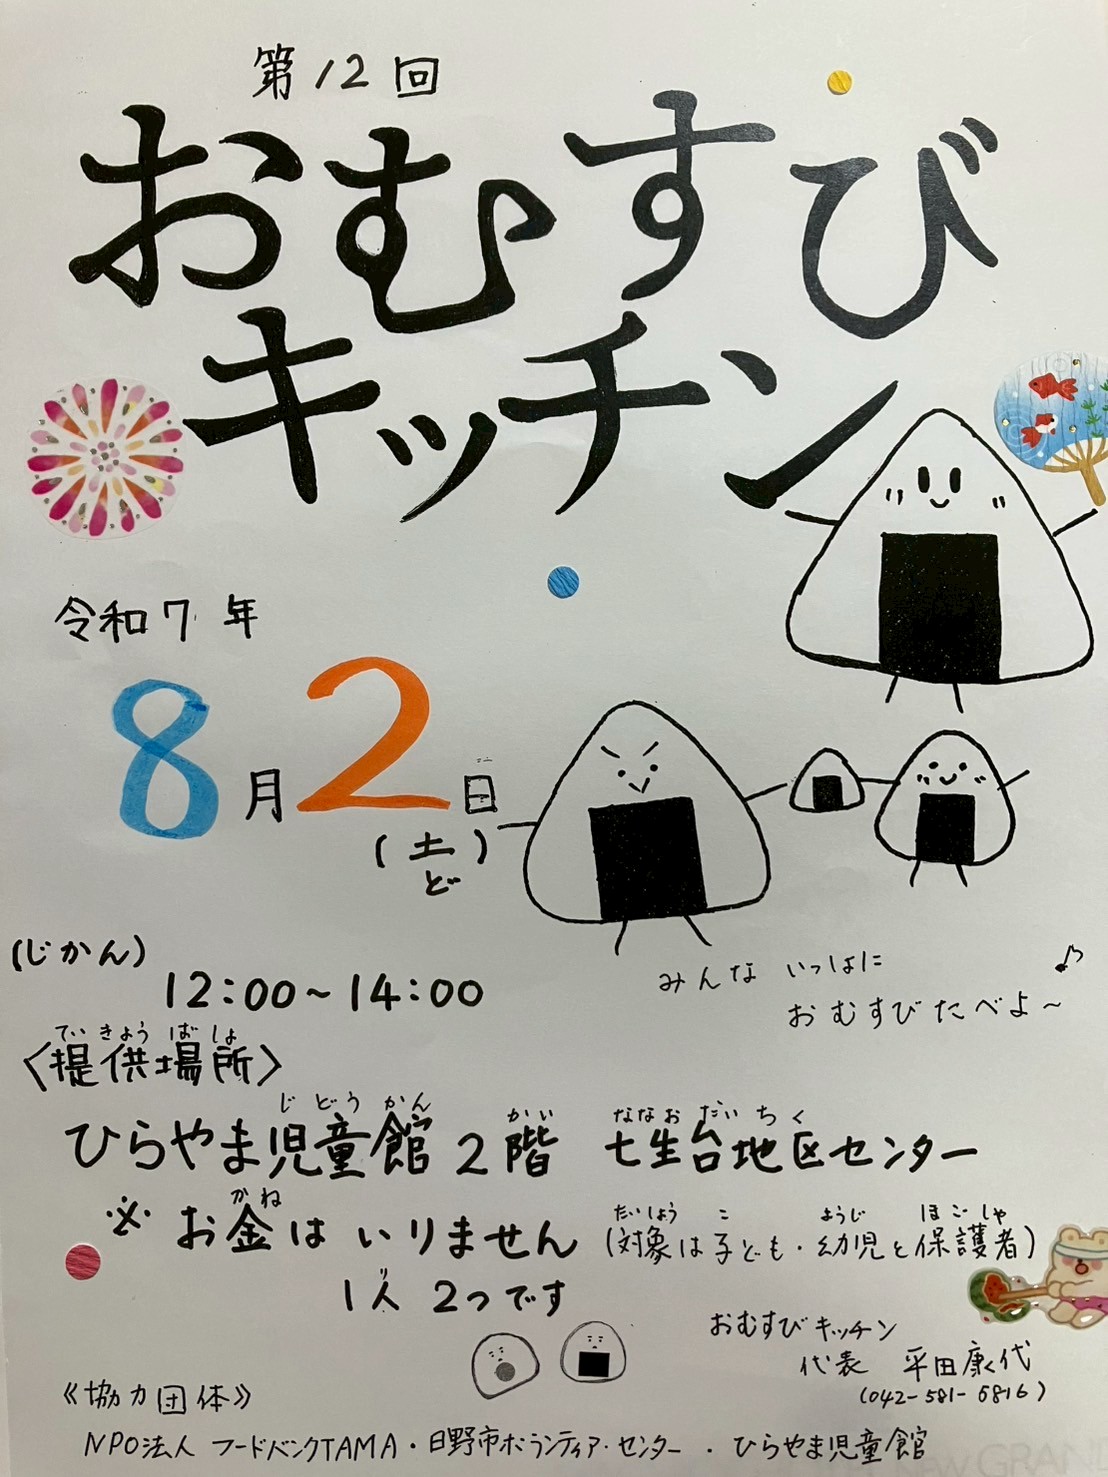 第12回
おむすび
キッチン
令和7年
8月2日
(土)
ど
(じかん)
12:00~14:00
みんな いっしょに
おむすびたべよ~
ていきょうばしょ
〈提供場所〉
じどうかん かい ななおだいちく
ひらやま児童館 2階 七生台地区センター
かね
※ お金は いりません
たいしょう こ ようじ ほごしゃ
(対象は子ども・幼児と保護者)
り
1人 2つです
おむすびキッチン
代表 平田康代
(042-581-6816)
《協力団体》
NPO法人 フードバンクTAMA・日野市ボランティア・センター・ひらやま児童館